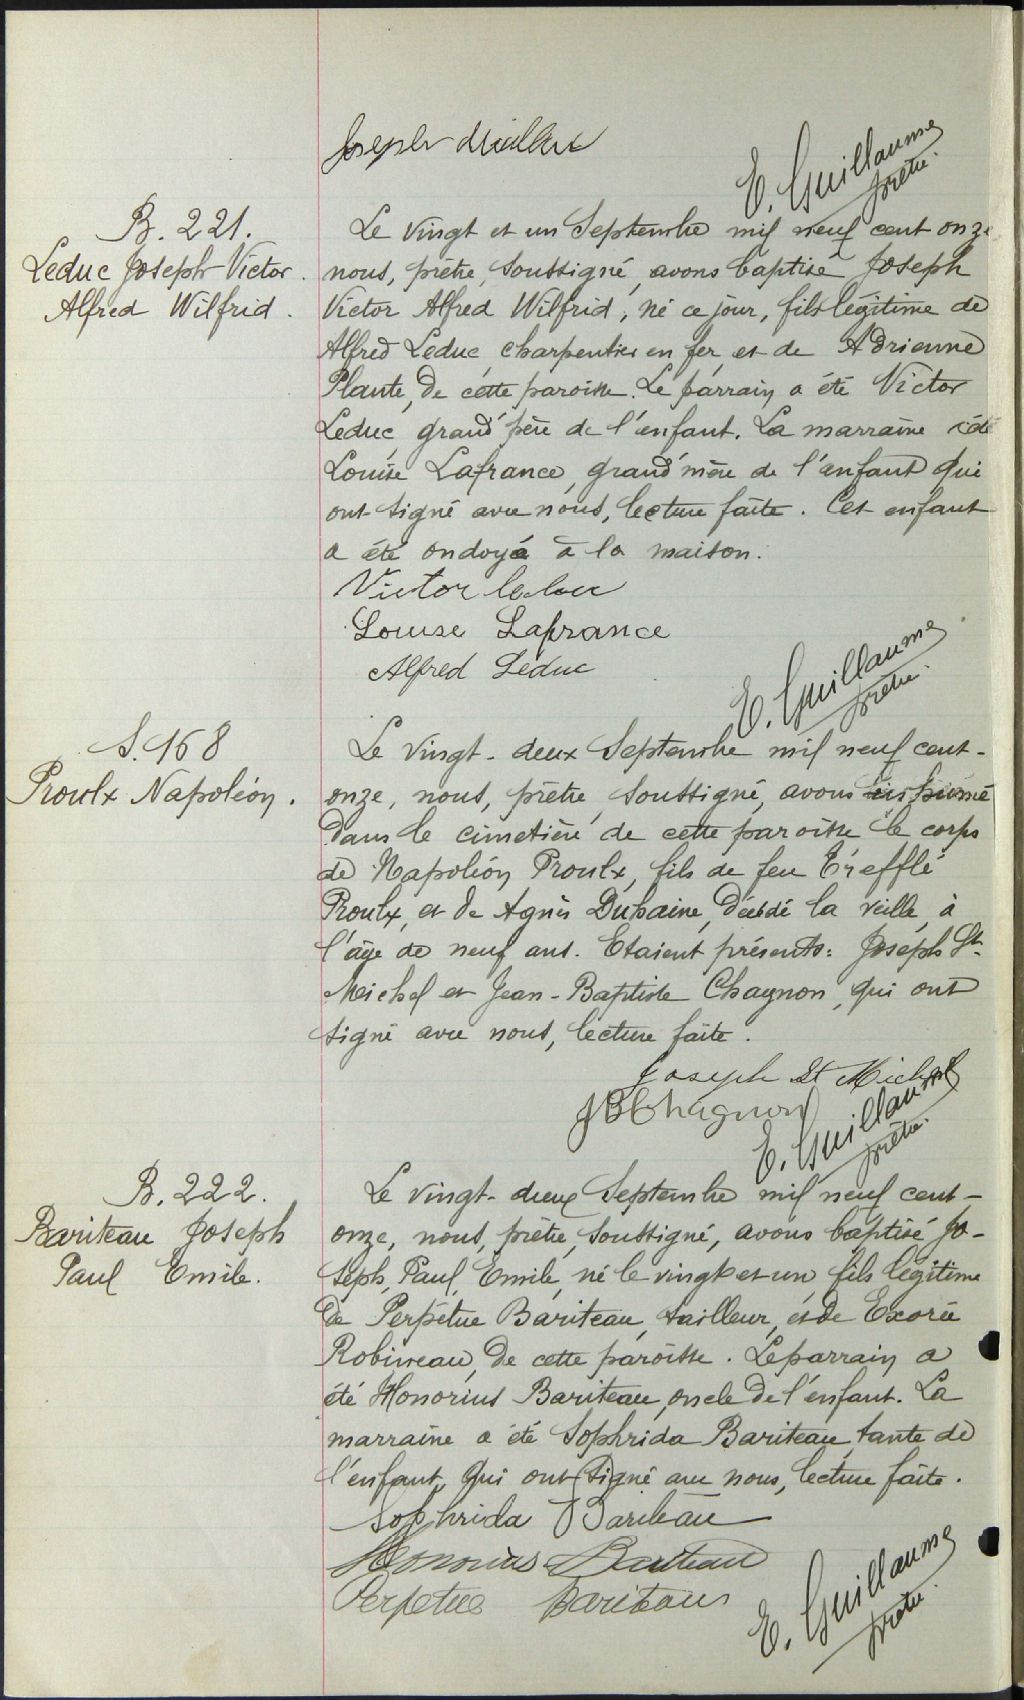 Joseph
E. Guillaume
prêtre.
B. 221.
Leduc Joseph Victor
Alfred Wilfrid.
Le vingt et un Septembre mil neuf cent onze
nous, prêtre soussigné, avons baptisé Joseph
Victor Alfred Wilfrid, né ce jour, fils légitime de
Alfred Leduc charpentier en fer, et de Adrienne
Plante, de cette paroisse. Le parrain a été Victor
Leduc, grand'père de l'enfant. La marraine a été
Louise Lafrance, grand'mère de l'enfant qui
ont signé avec nous, lecture faite. Cet enfant
a été ondoyé à la maison.
Victor Leduc
Louise Lafrance
Alfred Leduc
E. Guillaume
prêtre.
S. 168
Proulx Napoléon.
Le vingt-deux Septembre mil neuf cent-
onze, nous, prêtre soussigné, avons inhumé
dans le cimetière de cette paroisse le corps
de Napoléon Proulx, fils de feu Trefflé
Proulx, et de Agnès Duhaine, décédé la veille, à
l'âge de neuf ans. Etaient présents: Joseph St-
Michel et Jean-Baptiste Chagnon, qui ont
signé avec nous, lecture faite.
Joseph St Michel
JB Chagnon
E. Guillaume
prêtre.
B. 222.
Bariteau Joseph
Paul Emile.
Le vingt-deux Septembre mil neuf cent-
onze, nous, prêtre, soussigné, avons baptisé Jo-
seph, Paul, Emile, né le vingt et un fils légitime
de Perpétue Bariteau, tailleur, et de Exorée
Robineau, de cette paroisse. Le parrain a
été Honorius Bariteau, oncle de l'enfant. La
marraine a été Sophrida Bariteau, tante de
l'enfant, qui ont signé avec nous, lecture faite.
Sophrida Bariteau
Honorius Bariteau
Perpetue Bariteau
E. Guillaume
prêtre.